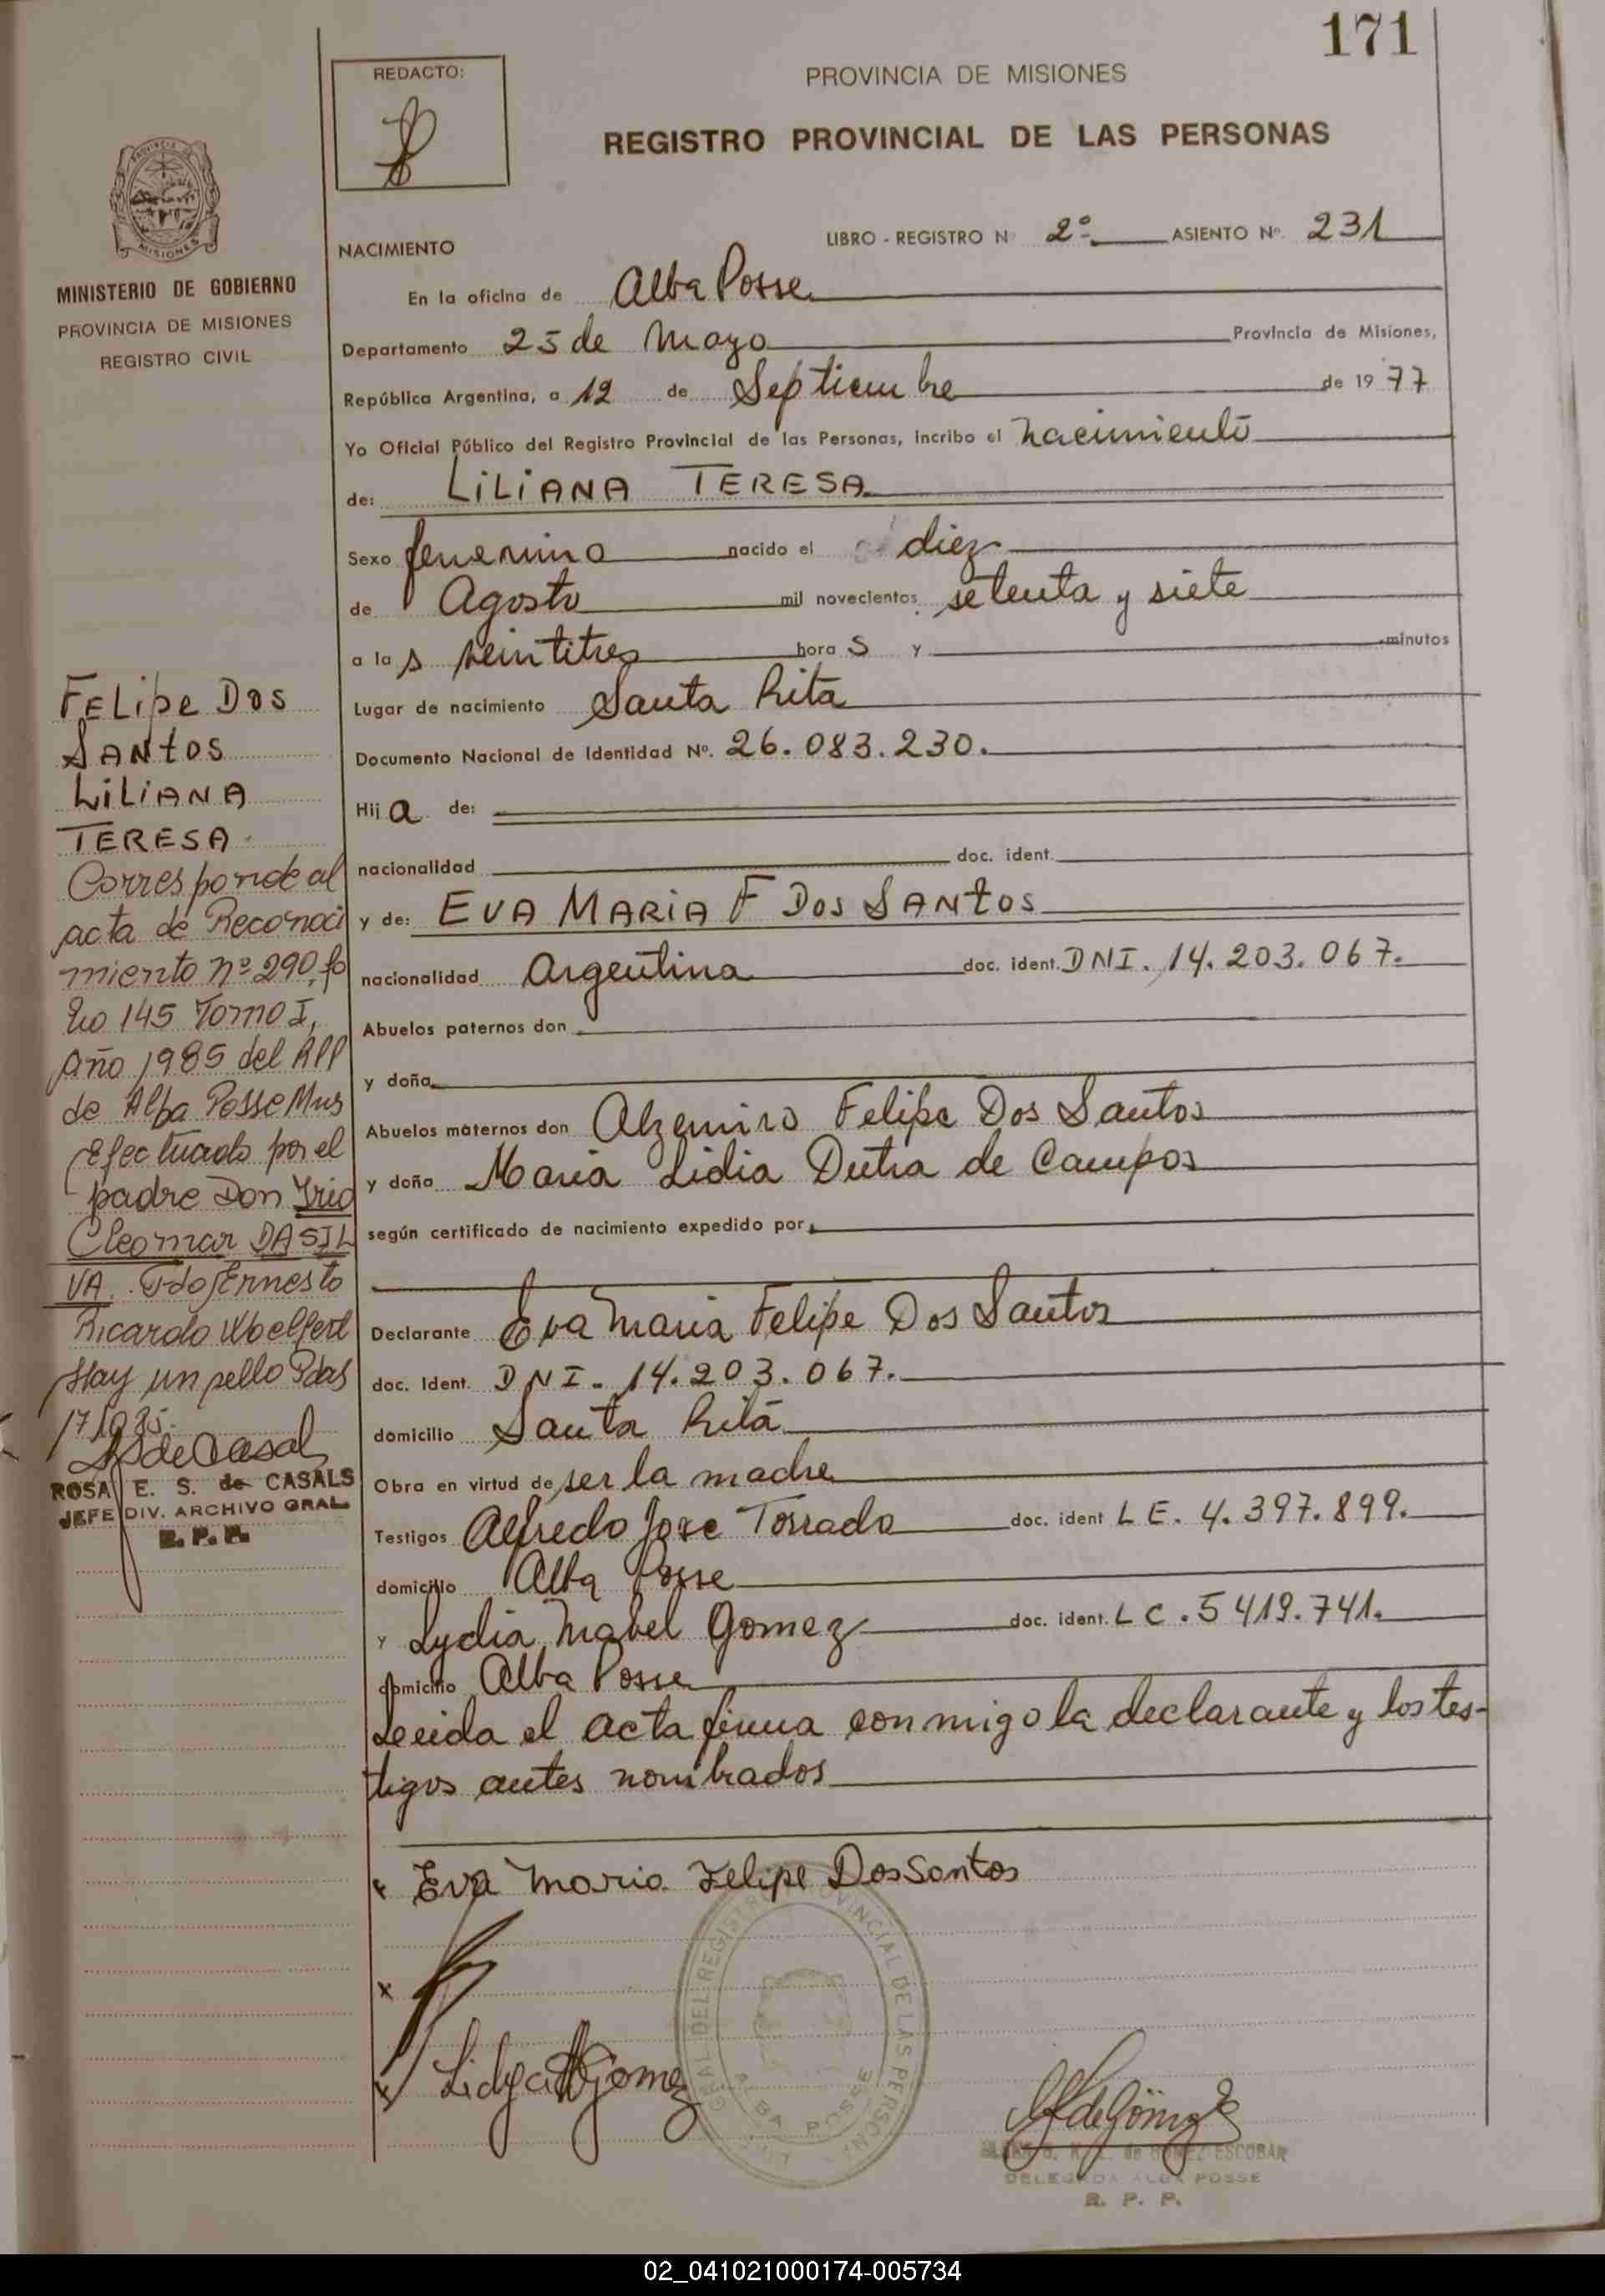 171
REDACTO:
PROVINCIA DE MISIONES
REGISTRO PROVINCIAL DE LAS PERSONAS
PROVINCIA DE
MISIONES
MINISTERIO DE GOBIERNO
PROVINCIA DE MISIONES
REGISTRO CIVIL
LIBRO - REGISTRO Nº 2º ASIENTO Nº. 231
NACIMIENTO
En la oficina de Alba Posse
Departamento 25 de Mayo Provincia de Misiones,
República Argentina, a 12 de Septiembre de 1977
Yo Oficial Público del Registro Provincial de las Personas, incribo el nacimiento
de: LILIANA TERESA
Sexo femenino nacido el diez
de Agosto mil novecientos setenta y siete
a las veintitres horas y minutos
Lugar de nacimiento Santa Rita
Documento Nacional de Identidad Nº. 26.083.230.
Hija de:
nacionalidad doc. ident.
y de: EVA MARIA F DOS SANTOS
nacionalidad Argentina doc. ident. DNI. 14.203.067.
Abuelos paternos don
y doña
Abuelos maternos don Alzemiro Felipe Dos Santos
y doña Maria Lidia Dutra de Campos
según certificado de nacimiento expedido por
Declarante Eva Maria Felipe Dos Santos
doc. Ident. DNI. 14.203.067.
domicilio Santa Rita
Obra en virtud de ser la madre
Testigos Alfredo Jose Torrada doc. ident LE. 4.397.899.
domicilio Alba Posse
y Lydia Mabel Gomez doc. ident. LC. 5419.741.
domicilio Alba Posse
Leida el acta firma conmigo la declarante y los tes-
tigos antes nombrados
FELIPE DOS
SANTOS
LILIANA
TERESA
Corresponde al
acta de Reconoci
miento nº 290, fo
lio 145 Tomo I,
Año 1985 del RPP
de Alba Posse Mns
Efectuado por el
padre Don Irio
Cleomar DA SIL
VA. Fdo Ernesto
Ricardo
Hay un sello Pdas
ROSA E. S. de CASALS
JEFE DIV. ARCHIVO GRAL.
R. P. P.
Eva Maria Felipe Dos Santos
GRAL DEL REGISTRO PROVINCIAL DE LAS PERSONAS
ALBA POSSE
de GOMEZ ESCOBAR
DELEGADA ALBA POSSE
R. P. P.
02_041021000174-005734